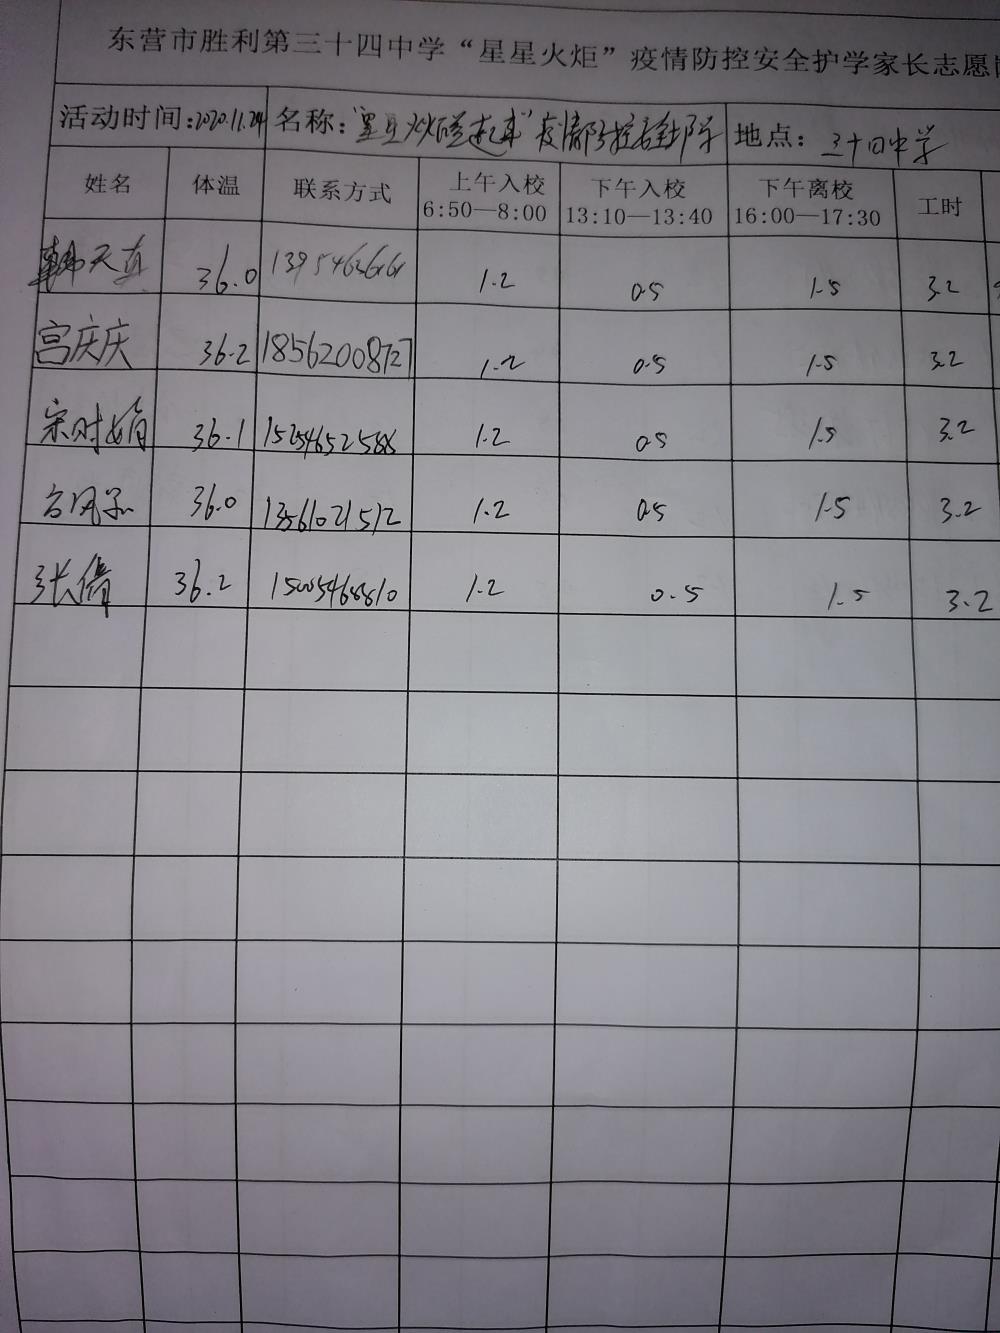 东营市胜利第三十四中学“星星火炬”疫情防控安全护学家长志愿
活动时间:2020.11.24 名称: 疫情防控安全护学 地点: 三十四中学
姓名 体温 联系方式 上午入校 6:50—8:00 下午入校 13:10—13:40 下午离校 16:00—17:30 工时
韩天真 36.0 1.2 0.5 1.5 3.2
宫庆庆 36.2 18562008727 1.2 0.5 1.5 3.2
宋时娟 36.1 1.2 0.5 1.5 3.2
36.0 13561021512 1.2 0.5 1.5 3.2
张倩 36.2 15005468810 1.2 0.5 1.5 3.2